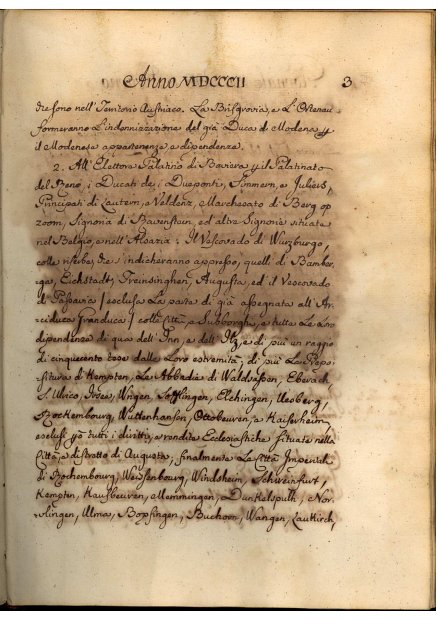 Anno MDCCCII 3
che sono nell'Territorio Austriaco. La Brisgrovia, e L'Ortenau
formeranno L'indennizzazione del già Duca di Modena p
il Modenese appartenenze e dipendenze.
2. All'Elettore Palatino di Baviera p il Palatinato
del Reno, i Ducati de i Dueponti, Simmern, e Juliers,
Principati di Lautern, e Veldenz, Marchesato di Berg op
zoom, Signoria di Ravenstein, ed altre Signorie situate
nel Belgio, e nell'Alsazia: Il Vescovado di Wurzburgo,
colle riserbe, che indicheranno appresso; quelli di Bamber
ga, Eichstadt, Freinsinghen, Augusta, ed il Vescovado
di Passavia / esclusa La parte di già assegnata all'Ar
ciduca Granduca / colle Città, e Subborghi, e tutta La
dipendenza di qua dell'Inn, e dell'Ilz, e di più un raggio
di cinquecento tese dalle Loro estremità; di più La Propo
situra di Kempten, Le Abbadie di Waldsassen, Eberach
S. Ulrico, Irsee, Wengen, Söfflingen, Elchingen, Ursberg,
Rockembourg, Wettenhausen, Ottobeuren, e Kaiserheim,
esclusi tutti i diritti, e rendite Ecclesiastiche situate nella
Città, e distretto di Augusta; finalmente Le Città Imperiali
di Rothembourg, Weisenbourg, Windsheim, Schweinfurt,
Kempten, Kaufbeuren, Memmingen, Dunkelspulh, Nor
dlingen, Ulma, Bopfingen, Buchorn, Wangen, Lautkirch,